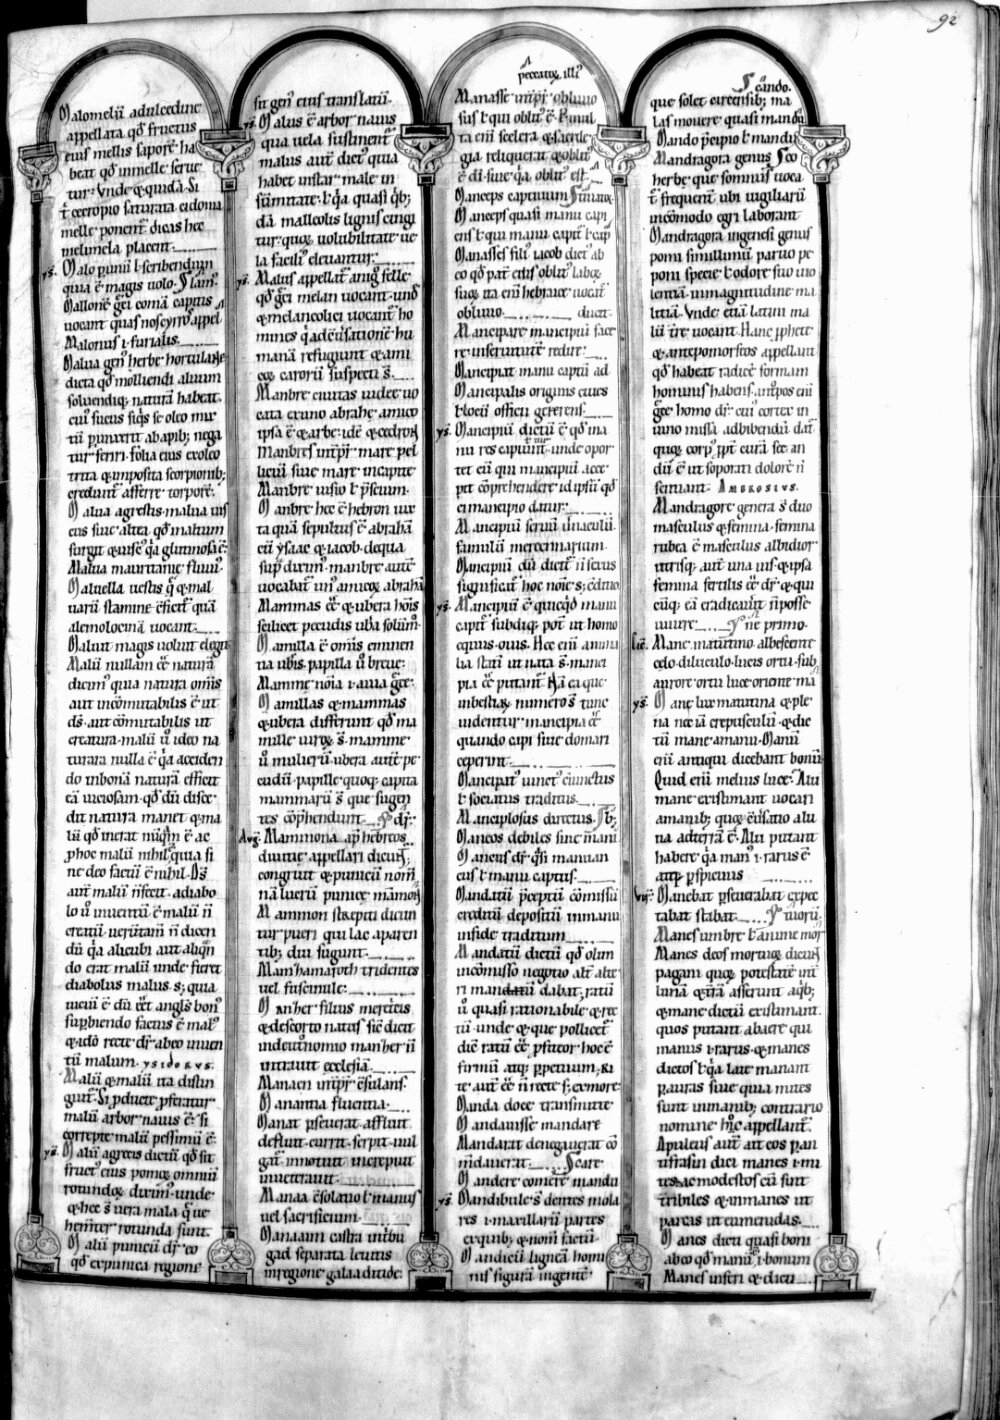 92
Malomeliũ adulcedine
appellata qđ fructus
eius mellis saporẽ ha
beat qđ inmelle serue
tur. Vnde & quidã. Si
melle ponent̃ dicas hec
melimela placent.
Malo punĩ ł scribendum
quia ẽ magis uolo.
uocant quas nos
Malonus .i. furialis.
Malua gen̾ herbe hortulane
dicta qđ molliendi aluum
soluendiq; naturã habeat.
cui̾ sucus siq̃s se oleo mix
tũ punxerit ab apib; nega
tur feriri. folia eius exoleo
trita & imposita scorpionib;
credunt̃ afferre torporẽ.
Malua agrestis. malua uis
cus siue altea qđ inaltum
surgit & uiscẽ q̃a glutinosa ẽ.
Malua mauritanie fluui̾.
Maluella uestis q̃ & mal
uarũ stamine cõficit̃ quã
alemolocinã uocant.
Malunt magis uolunt elegñ
Malũ nullam eẽ naturã
dicim̾ quia natura om̃is
aut incõmutabilis ẽ ut
dš. aut cõmutabilis ut
creatura. malũ ũ ideo na
turara nulla ẽ q̃a acciden
do inbonã naturã efficit
eã uiciosam. qđ dũ disce
dit natura manet & ma
lũ qđ inerat nusq̃m ẽ ac
phoc malũ nihil quia si
ne deo factũ ẽ nihil. Ds̃
aut̃ malũ ñ fecit. adiabo
lo ũ inuentũ ẽ malũ ñ
creatũ uerũtam̃ ñ dicen
dũ q̃a alicubi aut aliqñ
do erat malũ unde fieret
diabolus malus. s; quia
uiciũ ẽ dũ eẽt angls̃ bon̾
supbiendo factus ẽ mal̾
& idõ recte dr̃ abeo inuen
tũ malum. ysidorvs.
Malũ & malũ ita distin
guit̃. Si pducte pferatur
malũ arbor nauis ẽ. si
correpte malũ pessimũ ẽ.
ys̃. Malũ agrecis dictũ qđ sit
fruct̾ eius pomoꝝ omniũ
rotundoꝝ dictũ. unde
& hec s̃ uera mala que
rotunda sunt.
Malũ punicũ dr̃ eo
qđ expunica regione
sit gen̾ eius translatũ.
ys̃. Malus ẽ arbor nauis
qua uela sustinent̃
malus aut̃ dict̾ quia
habet instar male in
sũmitate. ł q̃a quasi q̃b;
dã malleolis lignis cingi
tur. quoꝝ uolubilitate ue
la facili̾ eleuantur.
ys̃. Malus appellat̃ anig̃ felle.
qđ g̃ci melan uocant. unđ
& melancolici uocant̃ ho
mines q̃ adcũsationẽ hu
manã refugiunt & ami
coꝝ caroꝝ suspecti s̃.
Manbre ciuitas iudee uo
cata exuno abrahe amico
ipsa ẽ & arbe. idẽ & cedroꝝ
Manbres int̃pr̃ mare pel
liciũ siue mare inapice
Manbre uisio ł pspicuum.
Manbre hec ẽ hebron iux
ta quã sepultus ẽ abrahã
cũ ysaac & iacob. dequa
sup diximus. manbre. aut̃
uocabat̃ un̾ amicoꝝ abrahã
Mammas eẽ & ubera hõis
scilicet pecudis ubera solũm̾.
Mamilla ẽ om̃is eminen
tia ub̃is. papilla ũ breue.
Mamme nõia .i. auia g̃ce.
Mamillas & mammas
& ubera differunt qđ ma
mille uiroꝝ s̃. mamme.
ũ mulierũ. ubera aut̃ pe
cudũ. papille quoq; capita
mammarũ s̃ que sugen
tes cõphendunt.
Avg̃. Mammona apđ hebreos.
diuitie appellari dicunt̃;
congruit & punicũ nom̃
nã lucrũ punice mãmon
Mammon
tur pueri qui lac aparen
tib; diu sugunt.
Mam hamaroth tridentes
uel fuscinule.
Manher filius meretricis
& descorto natus sic̃ dicit
indeut̃nomio manher ñ
intrauit ecclesiã.
Manaen int̃pr̃ cõsulans.
Manantia fluentia.
Manat pseuerat affluit
defluit. currit. serpit. uul
gat̃ innotuit increpuit
inueterauit.
Manaa cõsolatio ł manus
uel sacrificium.
Manaam castra int̃bu
gad separata leuitis
inregione galaaditide.
peccatoꝝ illi̾
Manasse int̃pr̃ obliuio
sus ł qui oblit̾ ẽ. p mul
ta enĩ scelera & sacrile
gia reliquerat & oblit̾
ẽ dĩ. siue q̃a oblit̾ est.
Manceps captiuum
Manceps quasi manu capi
ens ł qui manu capit̃ ł cap
Manasses fili̾ iacob dict̾ ab
eo qđ pat̃ eius oblit̾ laboꝝ
suoꝝ. ita enĩ hebraice uocat̃
obliuio.
Mancipare mancipiũ face
re. inseruitutẽ redire.
Mancipiat manu captũ ad
Mancipalis originis ciues
ł locũ officii gerens.
ys̃. Mancipiũ dictũ ẽ qđ ma
nu res capiunt̃. unde opor
tet eũ qui mancipiũ acce
pit cõprehendere idipsũ qđ
ei mancipio datur.
Mancipiũ seruũ
famulũ mercennarium.
Mancipiũ cũ dictũ ñ seruus
significat̃ hoc noĩe s;
ys̃. Mancipiũ ẽ quicq̃đ manu
capit̃ subdiq; pot̃ ut homo
equus. ouis. Hec enĩ anima
lia statĩ ut nata s̃. manci
pia eẽ putant̃. Nã ea que
inbestiaꝝ numero s̃ tunc
uidentur mancipia eẽ
quando capi siue domari
ceperint.
Mancipat̾ uinct̾ cõiunctus
ł sociatus traditus.
Manciplosus directus.
Mancos debiles sine mañ
Mancus dr̃. q̃si manuan
cus ł manu captus.
Mandatũ pceptũ cõmissũ
creditũ depositũ inmanu
inside traditum.
Mandatũ dictũ qđ olim
incõmisso negotio alt̃ alte
ri man dabat. ratũ
ũ quasi rationabile & rec
tũ. unde & que pollicet̃
dic̃ ratũ eẽ pfitetur hoc ẽ
firmũ atq; ppetuum. Ri
te aut̃ eẽ ñ recte s; exmore.
Manda doce transmitte
Mandauisse mandare
Mandarat denegauerat cõ
mĩdauerat. Scare.
Mandere comere mandu
ys̃. Mandibule s̃ dentes mola
res .i. maxillarũ partes
exquib; & nom̃ factũ.
Mandicũ ligneã homi
nis figurã ingentẽ.
Scando.
que solet circensib; ma
las mouere quasi mandũ
Mando pcipio ł mandu
Mandragora genus
herbe que somnus uoca
t̃ frequent̃ ubi uigiliarũ
incõmodo egri laborant
Mandragora ingenesi genus
pomi simillimũ paruo pe
poni specie ł odore suo uio
lentiã inmagnitudine ma
litiã. Vnde eũ latini ma
lũ t̃re uocant. Hanc pphete
& antepomorfeos appellant
qđ habeat radicẽ formam
hominis habens. int̃pos eni
g̃ce homo dr̃. cui̾ cortex in
uino missã adbibendũ dat̃
quoꝝ corp̾ ppt̃ curã sec an
dũ ẽ ut soporati dolorẽ ñ
sentiant. Ambrosivs.
Mandragore genera s̃ duo
masculus & femina. femina
rubea ẽ masculus albidior
utriusq; aut̃ una uis & ipsa
femina fertilis eẽ dr̃ & qui
cũq; eã eradicauit ñ posse
uiuere. ne primo.
Mane. matutino albescente
celo. diluculo. lucis ortu. sub
aurore ortu luce oriente mã
ys̃. Mane lux matutina & ple
na nec iã crepusculũ & dic
tũ mane amanu. Manũ
enĩ antiqui dicebant bonũ
Quid enĩ melius luce. Alii
mane existimant uocari
amanib; quoꝝ cũsatio alu
na adterrã ẽ. Alii putant
habere q̃a man̾ .i. rarus ẽ
atq; pspicuus
Manebat pseuerabat expec
tabat stabat.
Manes umbre ł anime mor
Manes deos mortuoꝝ dicunt̃
pagani quoꝝ potestatẽ int̃
lunã & t̃rã asserunt. aq̃b;
& mane dictũ existimant.
quos putant abaere qui
manus .i. rarus. & manes
dictos ł q̃a late manant
p auras siue quia mites
sunt inmanib; contrario
nomine hoc appellant̃.
Apuleius aut̃ ait eos p an
tifrasin dici manes .i. mi
tes ac modestos cũ sunt
t̃ribiles & inmanes ut
parcas ut eumenidas.
Manes dicti quasi boni
abeo qđ manũ .i. bonum
Manes inferi & dicti